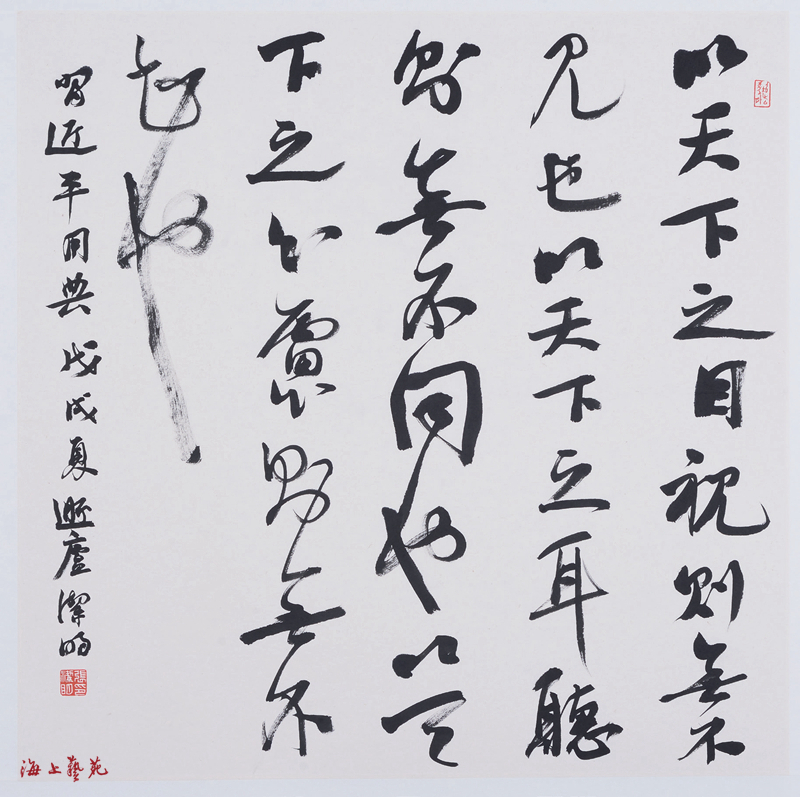 以天下之目視則無不
見也以天下之耳聽
則無不聞也以天
下之心慮則無不
知也
習近平用典 戊戌夏 遯廬潔明
海上藝苑